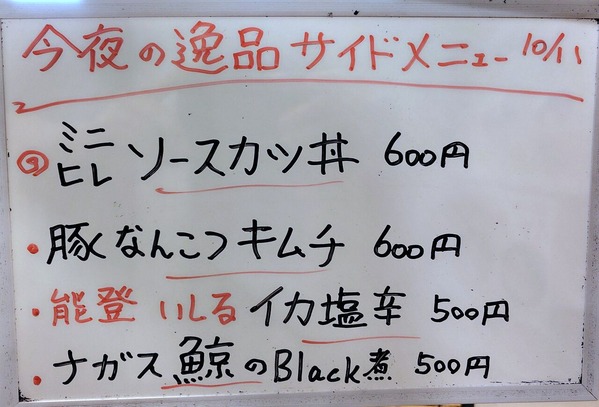 今夜の逸品サイドメニュー 10/11
ミニヒレ ソースカツ丼 600円
・豚なんこつキムチ 600円
・能登 いしる イカ塩辛 500円
・ナガス鯨のBlack煮 500円